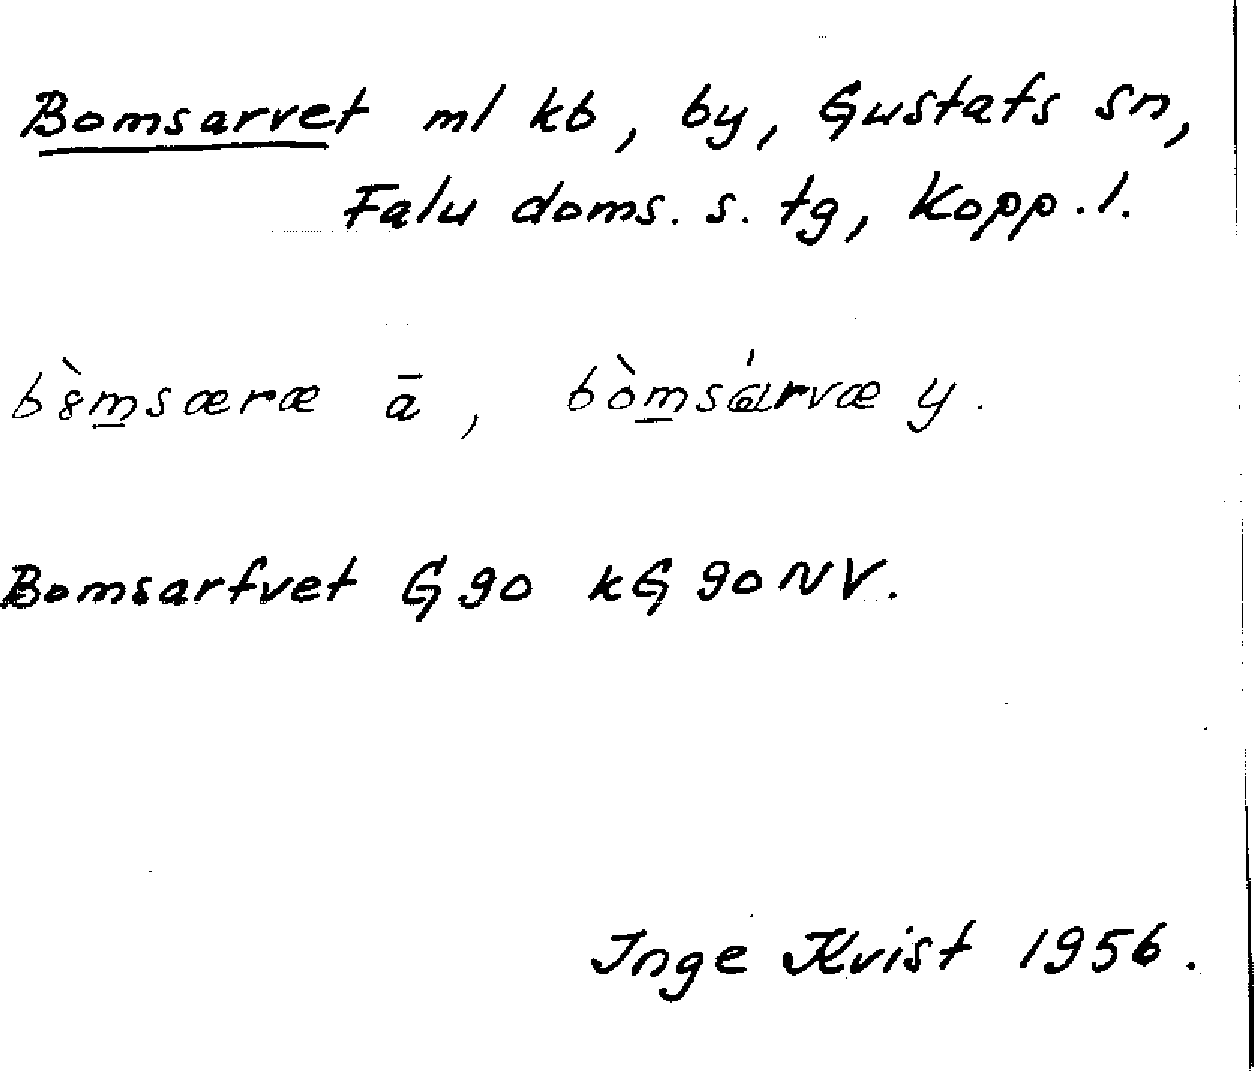 Bomsarvet ml kb, by, Gustafs sn,
Falu doms. s. tg, Kopp. l.
bòm̲særæ ā, bòm̲sárvæ y.
Bomsarfvet G 90 kG 90 NV.
Inge Kvist 1956.